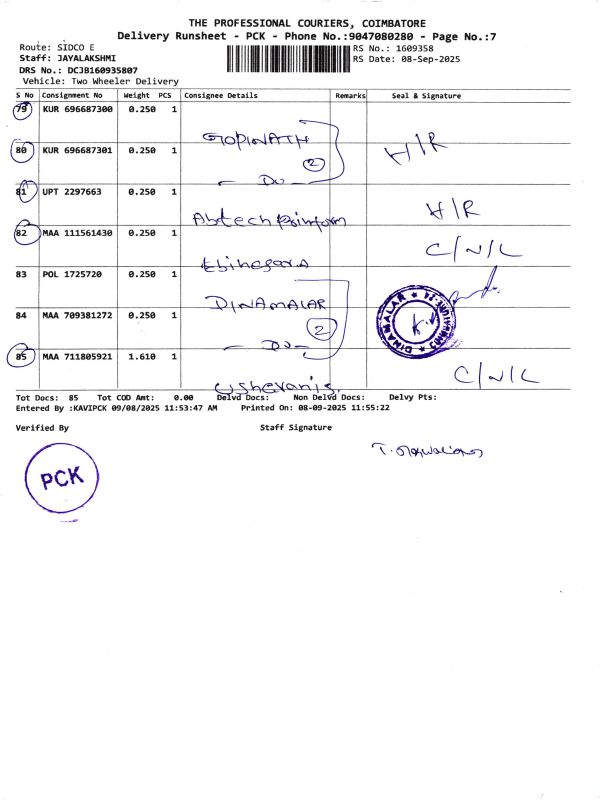 THE PROFESSIONAL COURIERS, COIMBATORE
Delivery Runsheet - PCK - Phone No.:9047080280 - Page No.:7
Route: SIDCO E
RS No.: 1609358
Staff: JAYALAKSHMI
RS Date: 08-Sep-2025
DRS No.: DCJB160935807
Vehicle: Two Wheeler Delivery
S No Consignment No Weight PCS Consignee Details Remarks Seal & Signature
79 KUR 696687300 0.250 1
GOPINATH
80 KUR 696687301 0.250 1 2 H/R
- Do -
81 UPT 2297663 0.250 1
H/R
82 MAA 111561430 0.250 1 C/N/L
83 POL 1725720 0.250 1
DINAMALAR
84 MAA 709381272 0.250 1 2
- Do -
DINAMALAR
85 MAA 711805921 1.610 1
C/N/L
Tot Docs: 85 Tot COD Amt: 0.00 Delvd Docs: Non Delvd Docs: Delvy Pts:
Entered By :KAVIPCK 09/08/2025 11:53:47 AM Printed On: 08-09-2025 11:55:22
Verified By Staff Signature
PCK